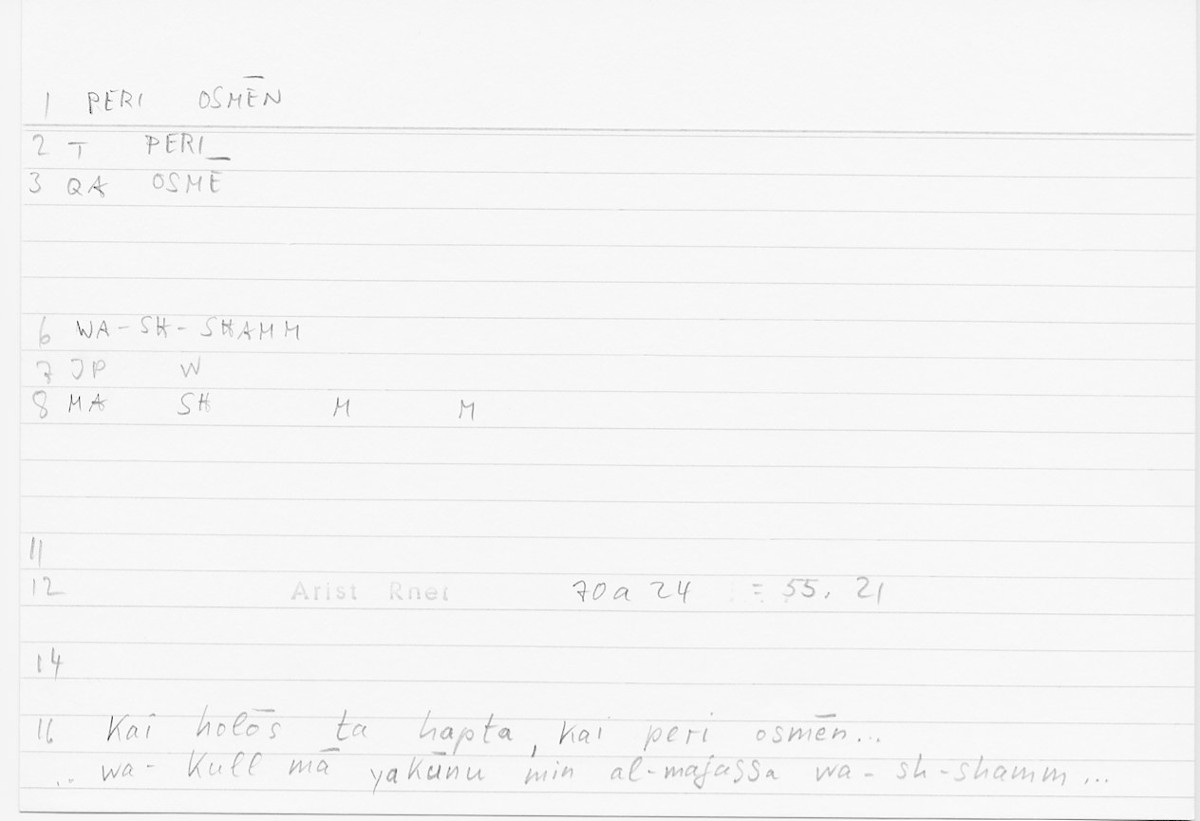 1 PERI OSMĒN
2 T PERI
3 QA OSMĒ
6 WA-SH-SHAMM
7 JP W
8 MA SH M M
11
12 Arist Rhet 70a 24 = 55, 21
14
16 Kai holōs ta hapta, kai peri osmēn...
.. wa- kull mā yakūnu min al-majassa wa-sh-shamm...